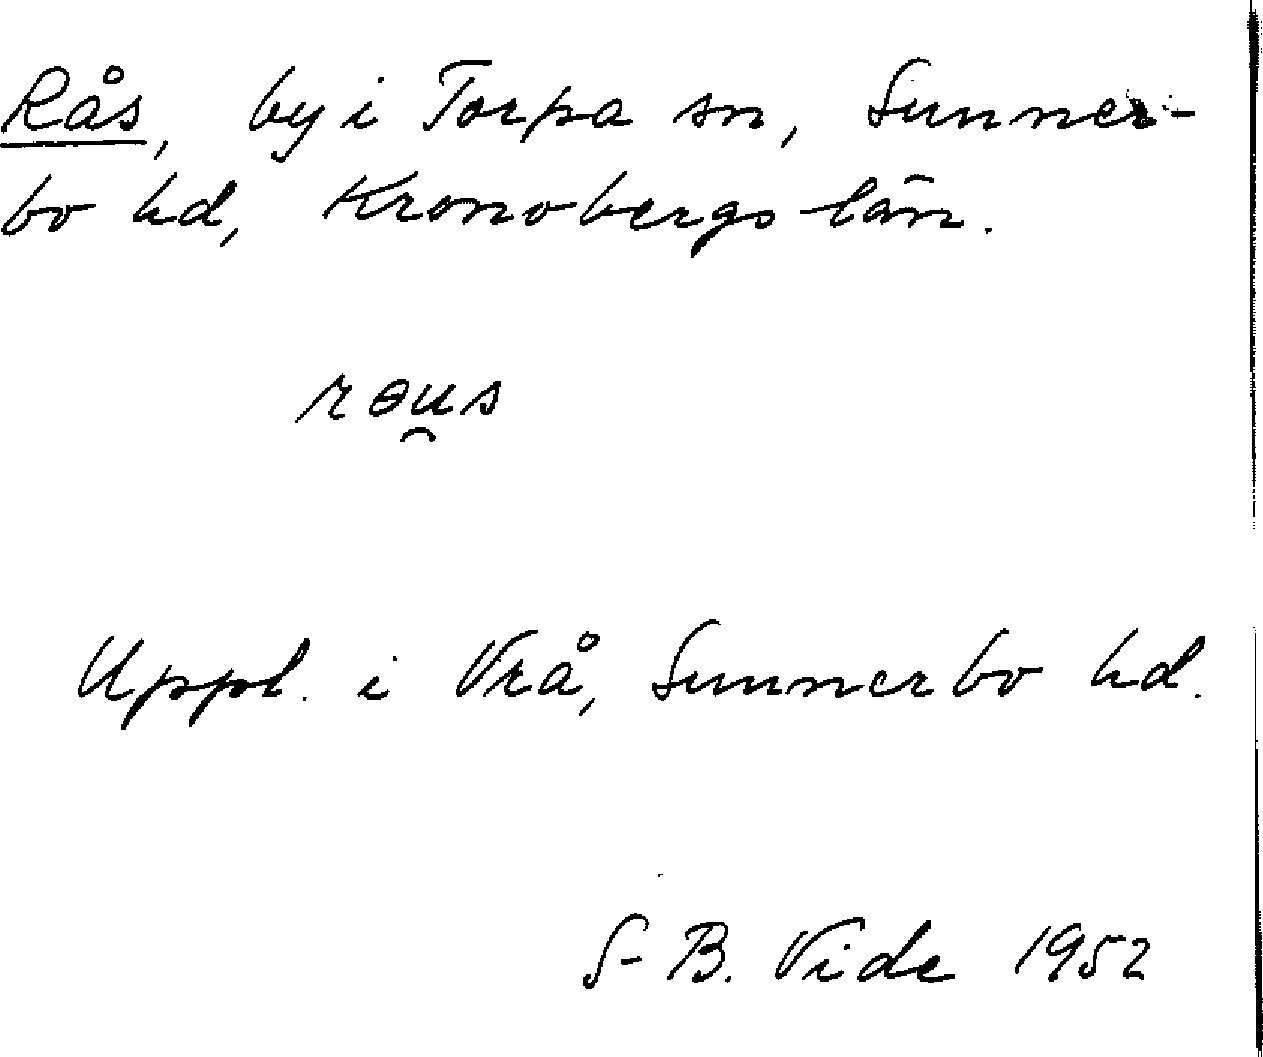 Rås, by i Torpa sn, Sunner-
bo hd, Kronobergs län.
rɵu̯s
Uppt. i Vrå, Sunnerbo hd.
S-B. Vide 1952